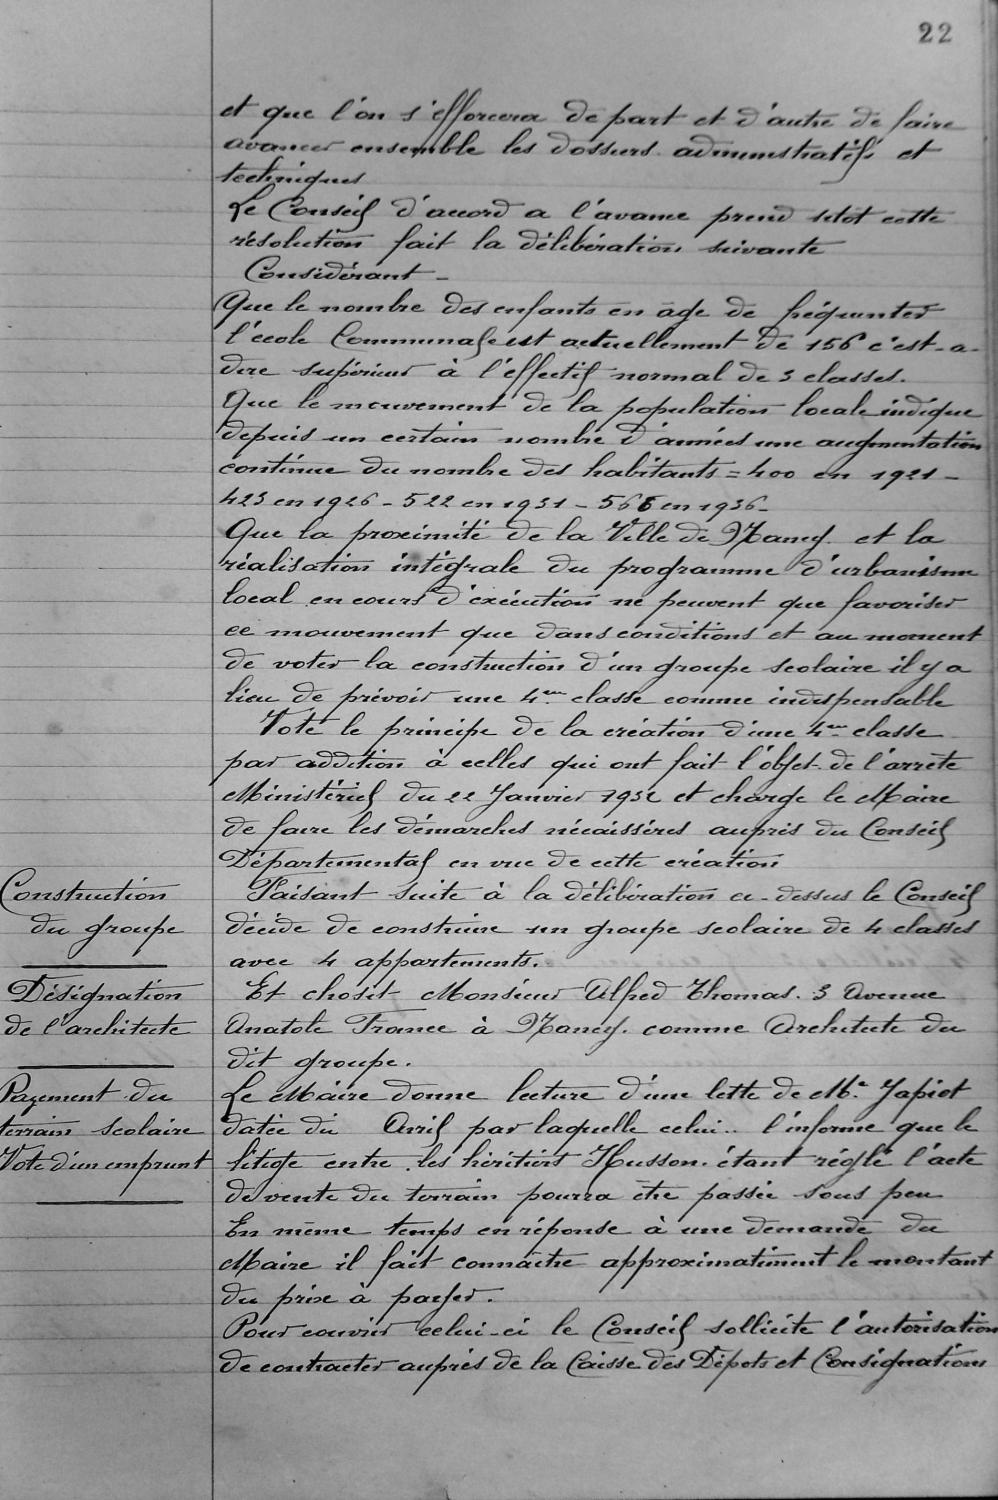 22
et que l'on s'efforcera de part et d'autre de faire
avancer ensemble les dossiers administratifs et
techniques
Le Conseil d'accord a l'avance prend sitôt cette
résolution fait la délibération suivante
Considérant -
Que le nombre des enfants en âge de fréquenter
l'école Communale est actuellement de 156 c'est-a-
dire supérieur à l'effectif normal de 3 classes.
Que le mouvement de la population locale indique
depuis un certain nombre d'années une augmentation
continue du nombre des habitants = 400 en 1921 -
423 en 1926 - 522 en 1931 - 565 en 1936-
Que la proximité de la Ville de Nancy. et la
réalisation intégrale du programme d'urbanisme
local en cours d'exécution ne peuvent que favoriser
ce mouvement que dans conditions et au moment
de voter la construction d'un groupe scolaire il y a
lieu de prévoir une 4em classe comme indispensable
Vote le principe de la création d'une 4em classe
par addition à celles qui ont fait l'objet de l'arrêté
Ministériel du 22 Janvier 1932 et charge le Maire
de faire les démarches nécaissères auprès du Conseil
Départemental en vue de cette création
Construction
du groupe
Faisant suite à la délibération ci-dessus le Conseil
décide de construire un groupe scolaire de 4 classes
avec 4 appartements.
Désignation
de l'architecte
Et choisit Monsieur Alfred Thomas. 3 Avenue
Anatole France à Nancy. comme Architecte du
dit groupe.
Payement du
terrain scolaire
Vote d'un emprunt
Le Maire donne lecture d'une lettre de Me Japiot
datée du Avril par laquelle celui.. l'informe que le
litige entre les héritiers Husson. étant réglé l'acte
de vente du terrain pourra être passée sous peu
En même temps en réponse à une demande du
Maire il fait connaître approximativment le montant
du prix à payer.
Pour couvrir celui-ci le Conseil sollicite l'autorisation
de contracter auprès de la Caisse des Dépots et Consignations